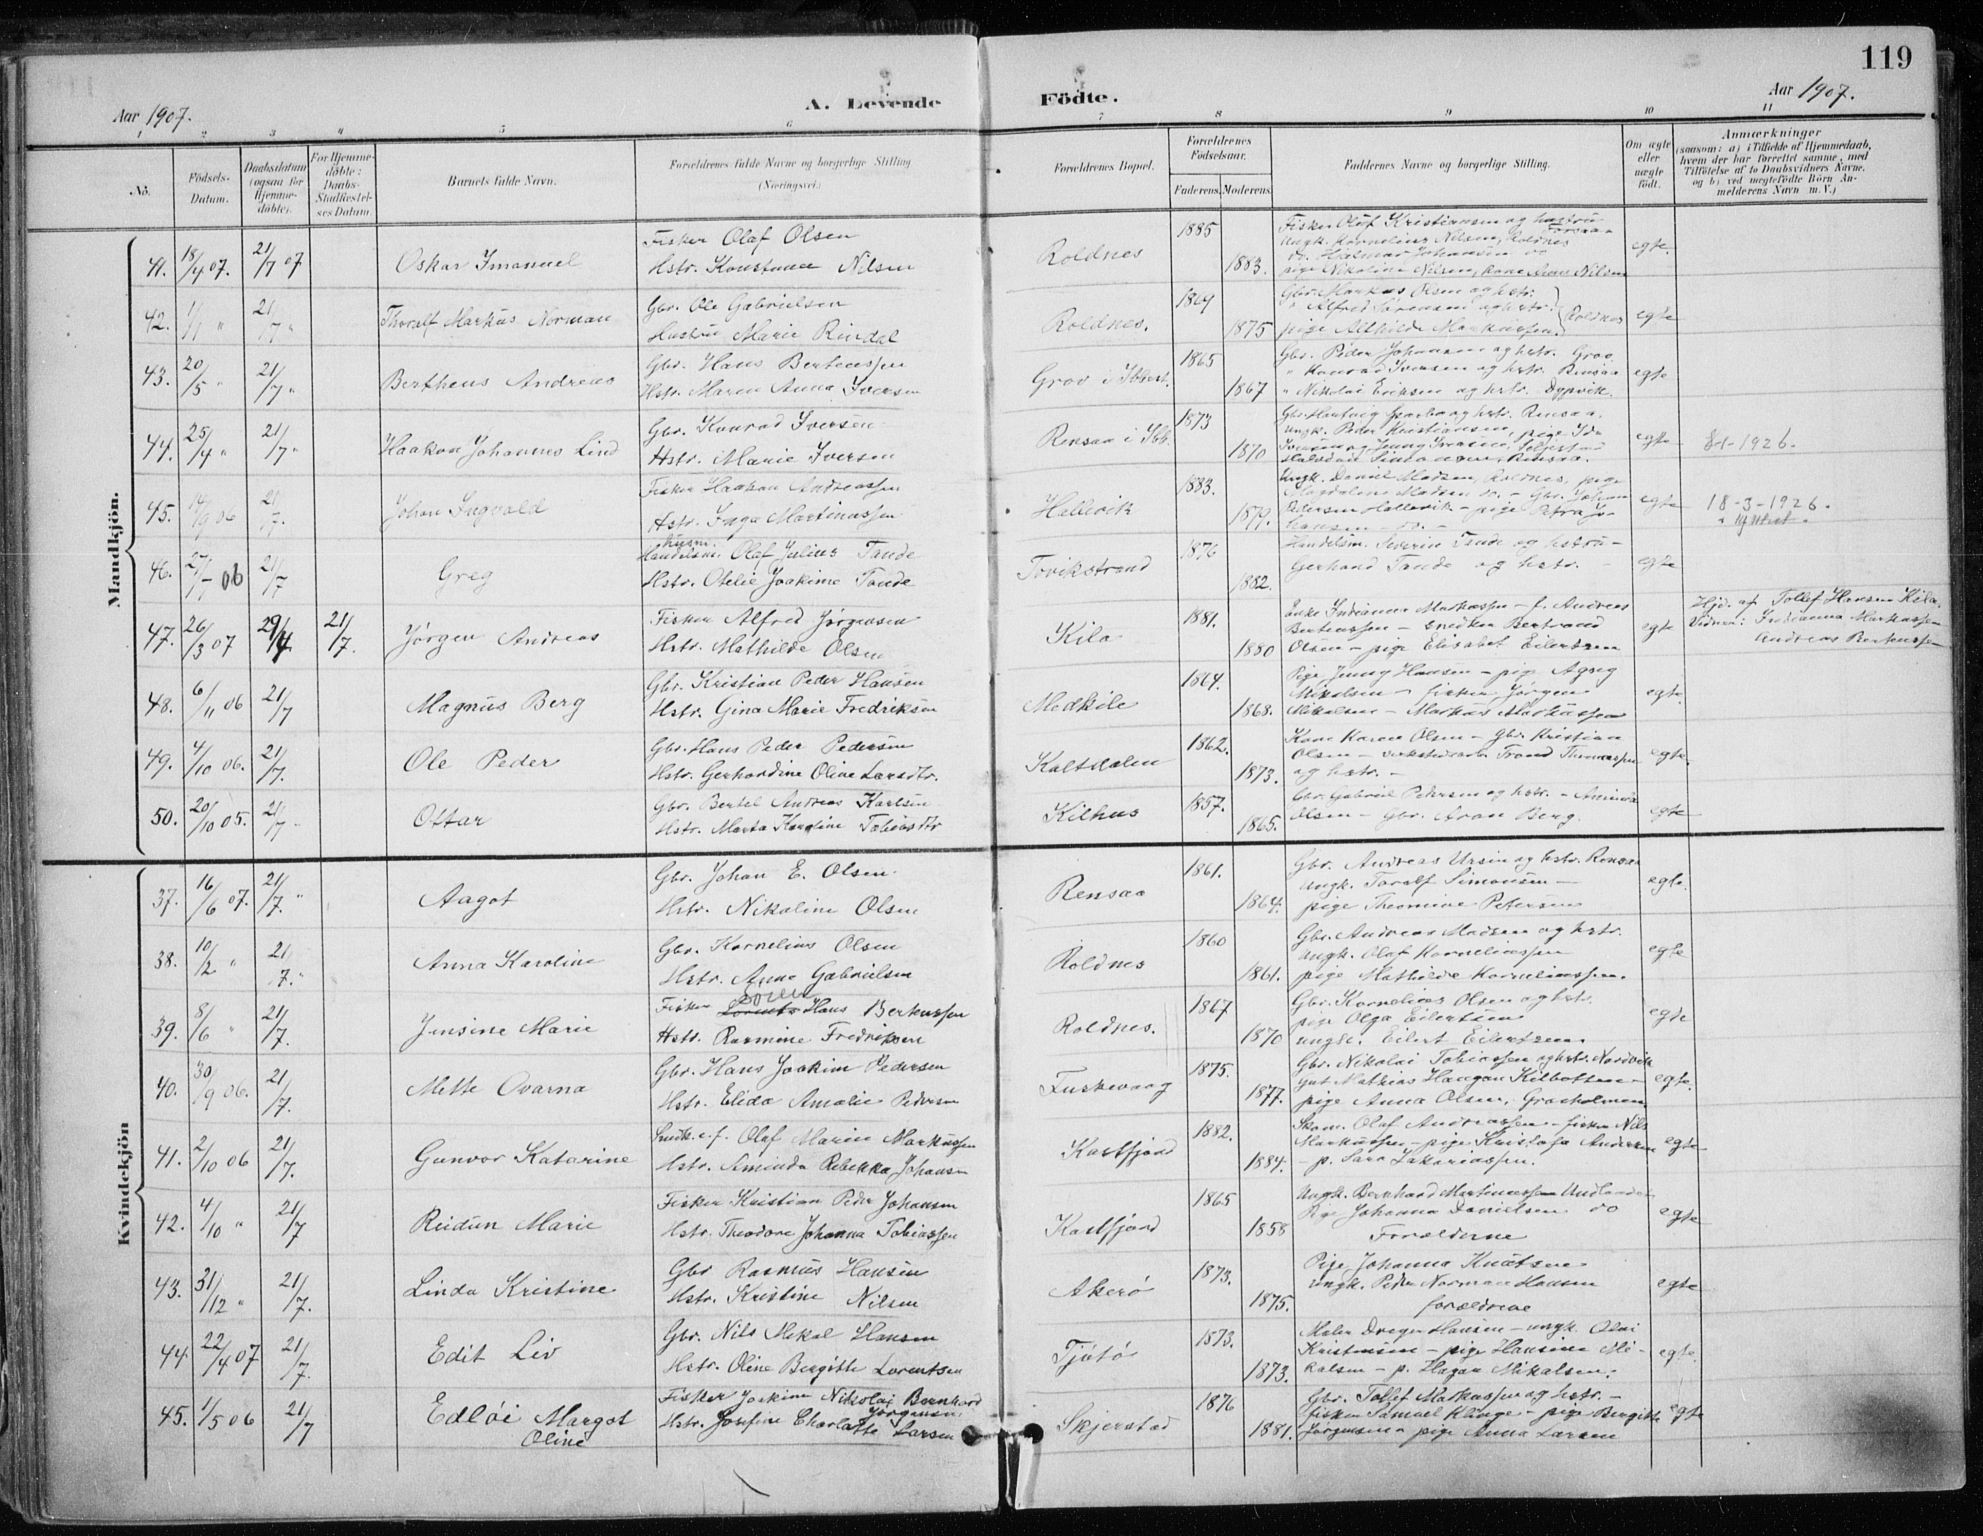 119
Aar 1907.
A. Levende
Födte.
Aar 1907.
1 2 3 4 5 6 7 8 9 10 11
No.
Födsels-Datum.
Daabsdatum (ogsaa for Hjemme-döbte).
For Hjemme-döbte: Daabs-Stadfæstel-ses Datum
Barnets fulde Navn.
Forældrenes fulde Navne og borgerlige Stilling (Næringsvei.)
Forældrenes Bopæl.
Forældrenes Födselsaar.
Faderens. Moderens.
Faddernes Navne og borgerlige Stilling.
Om ægte eller uægte födt.
Anmærkninger
(saasom: a) i Tilfælde af Hjemmedaab, hvem der har forrettet samme, med Tilföielse af to Daabsvidners Navne, og b) ved uægtefödte Börn An-melderens Navn m. V.)
Mandkjön.
41. 18/4 07. 21/7 07 Oskar Imanuel
Fisker Olaf Olsen
Hstr. Konstance Nilsen
Roldnes 1885 1883.
Fisker Oluf Kristiansen og hustru
Ungk. Kornelius Nilsen, Roldnes
do. Halmar Johansen do
pige Nikoline Nilsen, kone Anne Nilsen
egte.
42. 1/1 " 21/7 " Thoralf Markus Norman
Gbr. Ole Gabrielsen
Hustru Marie Rindal
Roldnes. 1869 1875
Gbr. Markus Olsen og hstr.
" Alfred Sørensen og hstr. Roldnes
pige Althilde Markussen.
egte
43. 20/5 " 21/7 " Bertheus Andreas
Gbr. Hans Berteussen
Hstr. Maren Anna Iversen
Grov i Ibbest. 1865 1867
Gbr. Peder Johansen og hstr. Grov.
" Konrad Iversen og hstr. Rensaa
" Nikolai Eriksen og hstr. Dypvik.
egte
44. 25/4 " 21/7 " Haakon Johannes Lind
Gbr. Konrad Iversen
Hstr. Marie Iversen
Rensaa i Ibb. 1873 1870
Ungk. Peder Kristiansen, pige Ida
egte 8-1-1926.
45. 14/9 06 21/7. Johan Ingvald
Fisker Haakon Andreassen
Hstr. Inga Martinussen
Hallevik 1883. 1879.
Ungk. Daniel Madsen, Roldnes, pige
Magdalene Madsen do. - Gbr. Johan
Petersen Hallevik - pige Petra Jo-
hansen do. -
egte 18-3-1926.
46. 27/7 06 21/7 Greg
husm.
Handelsm. Olaf Julius Tande
Hstr. Otelie Joakime Tande
Tovikstrand 1876 1882.
Handelsm. Severin Tande og hstru -
Gerhard Tande og hstr. -
egte
47. 26/3 07 29/4 21/7. Jørgen Andreas
Fisker Alfred Jørgensen
Hstr. Mathilde Olsen
Kila 1881. 1880
Enke Indianna Markussen - f. Andreas
Berteussen - snedker Bertrand
Olsen - pige Elisabet Eilertsen
egte
Hjd. af Tollef Hansen Kila.
Vidner: Indianna Markussen
Andreas Berteussen
48. 6/11 06 21/7 Magnus Berg
Gbr. Kristian Peder Hansen
Hstr. Gina Marie Fredriksen
Medkile 1864. 1868.
Pige Jenny Hansen - pige Agveg
Mikalsen - fisker Jørgen
Mikalsen - Markus Markussen
egte.
49. 4/10 06. 21/7. Ole Peder
Gbr. Hans Peder Pedersen
Hstr. Gerhardine Oline Larsdtr.
Kaltdalen 1862. 1873.
Kone Karen Olsen - Gbr. Kristian
Olsen - Trond Thomassen
og hstr. -
egte.
50. 20/10 05. 21/7 Ottar
Gbr. Bertel Andreas Karlsen
Hstr. Marta Karoline Tobiasdtr
Kilhus 1857. 1865.
Gbr. Gabriel Pedersen og hstr. - Aminda
Olsen - Gbr. Aron Berg.
egte
Kvindekjön
37. 16/6 07. 21/7. " Aagot
Gbr. Johan E. Olsen
Hstr. Nikoline Olsen
Rensaa 1861. 1864.
Gbr. Andreas Ursin og hstr. Rensaa
Ungk. Toralf Simonsen -
pige Theomine Petersen
egte.
38. 10/2 " 21/7. " Anna Karoline
Gbr. Kornelius Olsen
Hstr. Anne Gabrielsen
Roldnes 1860 1861.
Gbr. Andreas Madsen og hstr.
Ungk. Olaf Korneliussen
pige Mathilde Korneliussen.
egte
39. 8/6 " 21/7. Jensine Marie
Fisker Hans Berteussen
Hstr. Rasmine Fredriksen
Roldnes. 1867 1870
Gbr. Kornelius Olsen og hstr.
pige Olga Eilertsen
ungk. Eilert Eilertsen.
egte
40. 30/9 06. 21/7. Mette Ovarna
Gbr. Hans Joakim Pedersen
Hstr. Elida Amalie Pedersen
Fuskevaag 1875. 1877.
Gbr. Nikolai Tobiassen og hstr. Nordvik
Gut Mathias Haugan Kilbotten -
pige Anna Olsen, Graaholmen
egte.
41. 2/10 06 21/7. Gunvor Katarine
Snedk. e. f. Olaf Marin Markussen
Hstr. Aminda Rebekka Johansen
Kastfjord 1882. 1884.
Skom. Olaf Andreassen - fisker Nils
Markussen - pige Kristofa Andersen
- p. Sara Zakariassen.
egte
42. 4/10 " 21/7 Reidun Marie
Fisker Kristian Peder Johansen
Hstr. Theodore Johanna Tobiassen
Kastfjord 1865 1858
Ungk. Bernhard Martinussen Undlandet
Pige Johanna Danielsen do
Forælderne
egte
43. 31/12 " 21/7. Linda Kristine
Gbr Rasmus Hansen
Hstr. Kristine Nilsen
Akerø 1873. 1875.
Pige Johanna Knutsen
Ungk. Peder Norman Hansen
forældrene
egte
44. 22/4 07 21/7. Edit Liv
Gbr. Nils Mekal Hansen
Hstr. Oline Bergitte Lorentsen
Tjøtø 1873. 1873.
Maler Dreyer Hansen - ungk. Olai
Kristensen - pige Hansine Mi-
kalsen - p. Hagar Mikalsen.
egte.
45. 1/5 06 21/7 Edløi Margot Oline
Fisker Joakim Nikolai Bernhard Jørgensen
Hstr. Josefine Charlotte Larsen
Skjerstad 1876 1881.
Gbr. Tollef Markussen og hstr. -
fisker Samuel Klinge - pige Bergitte
Jørgensen - pige Anna Larsen
egte